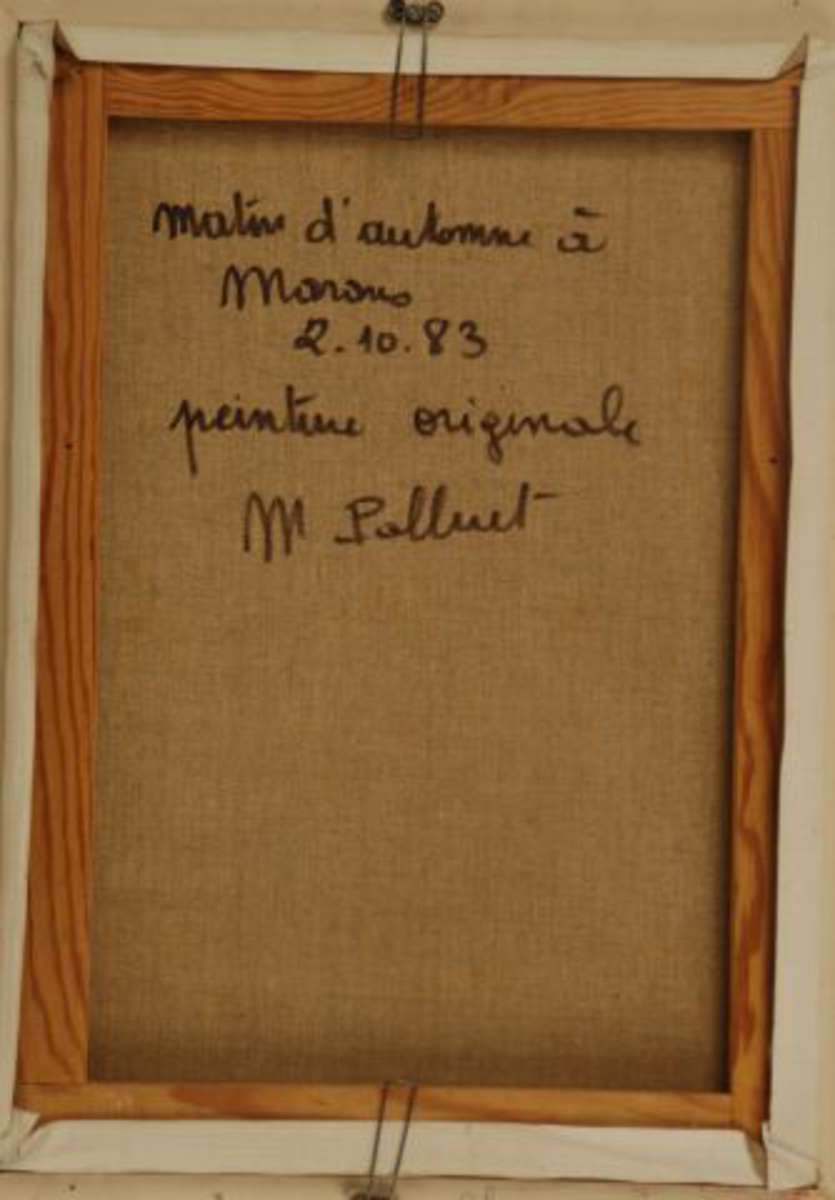 Matin d'automne à
Marans
2.10.83
peinture originale
M Palluet